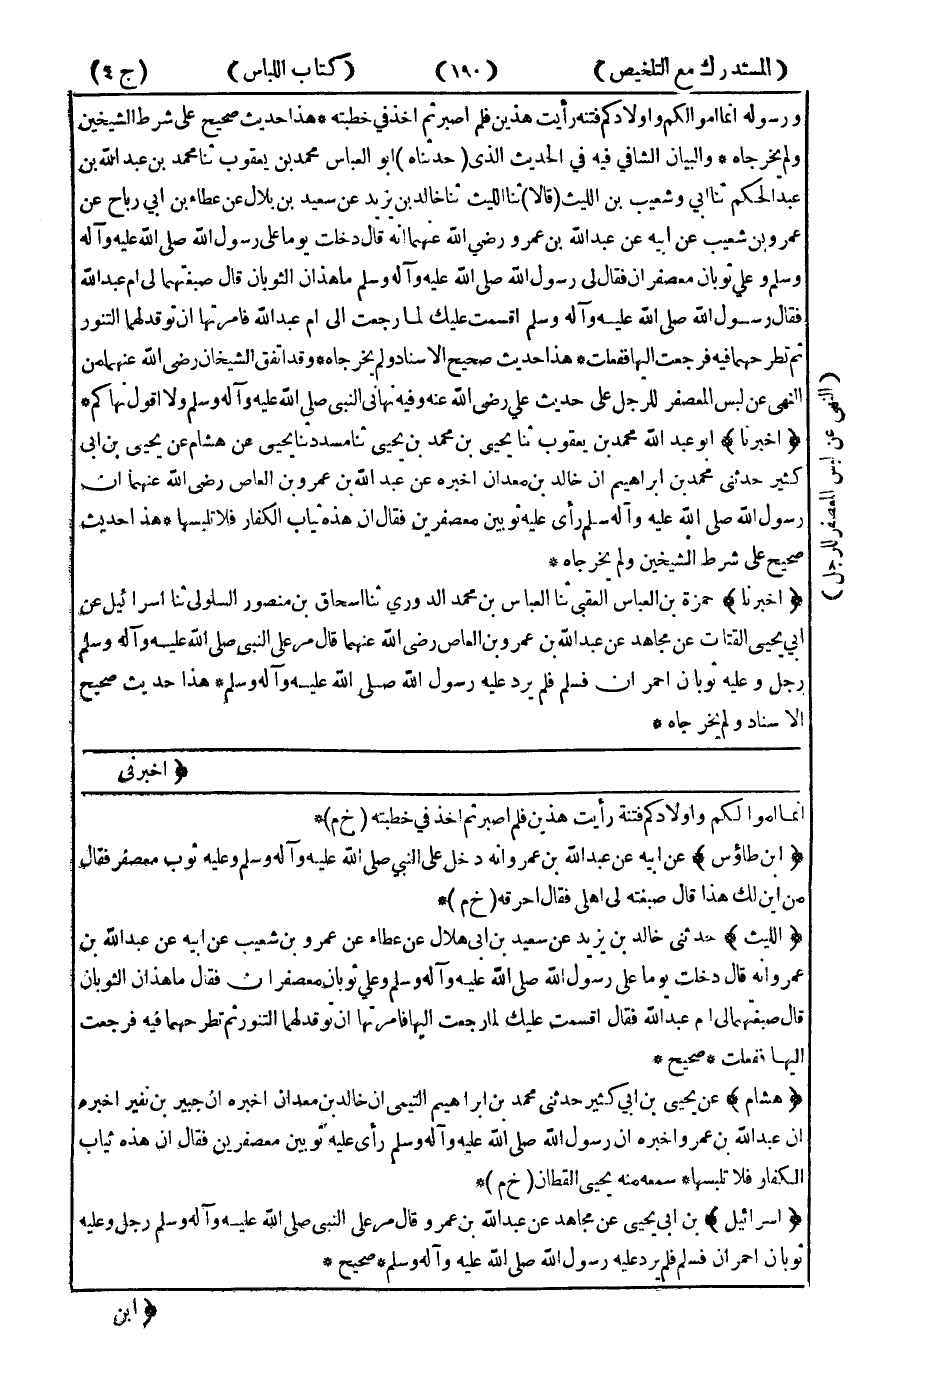 (المستدرك مع التلخيص) (١٩٠) (كتاب اللباس) (ج ٤)
ورسوله انما اموالكم واولادكم فتنة رأيت هذين فلم اصبر ثم اخذ في خطبته * هذا حديث صحيح على شرط الشيخين
ولم يخرجاه * والبيان الشافي فيه في الحديث الذى (حدثناه) ابو العباس محمد بن يعقوب ثنا محمد بن عبد الله بن
عبد الحكم ثنا ابي وشعيب بن الليث (قالا) ثنا الليث ثنا خالد بن يزيد عن سعيد بن بلال عن عطاء بن ابي رباح عن
عمرو بن شعيب عن ابيه عن عبد الله بن عمرو رضي الله عنهما انه قال دخلت يوما على رسول الله صلى الله عليه وآله
وسلم وعلي ثوبان معصفران فقال لى رسول الله صلى الله عليه وآله وسلم ما هذان الثوبان قال صبغتهما لى ام عبد الله
فقال رسول الله صلى الله عليه وآله وسلم اقسمت عليك لما رجعت الى ام عبد الله فامرتها ان توقد لهما التنور
ثم تطرحهما فيه فرجعت اليها ففعلت * هذا حديث صحيح الاسناد ولم يخرجاه * وقد اتفق الشيخان رضى الله عنهما من
النهى عن لبس المعصفر للرجل على حديث علي رضى الله عنه وفيه نهانى النبى صلى الله عليه وآله وسلم ولا اقول نهاكم *
﴿ اخبرنا ﴾ ابو عبد الله محمد بن يعقوب ثنا يحيى بن محمد بن يحيى ثنا مسدد ثنا يحيى عن هشام عن يحيى بن ابى
كثير حدثنى محمد بن ابراهيم ان خالد بن معدان اخبره عن عبد الله بن عمرو بن العاص رضى الله عنهما ان
رسول الله صلى الله عليه وآله وسلم رأى عليه ثوبين معصفرين فقال ان هذه ثياب الكفار فلا تلبسها * هذا حديث
صحيح على شرط الشيخين ولم يخرجاه *
﴿ اخبرنا ﴾ حمزة بن العباس العقبى ثنا العباس بن محمد الدوري ثنا اسحاق بن منصور السلولى ثنا اسرائيل عن
ابي يحيى القتات عن مجاهد عن عبد الله بن عمرو بن العاص رضى الله عنهما قال مر على النبى صلى الله عليه وآله وسلم
رجل وعليه ثوبان احمران فسلم فلم يرد عليه رسول الله صلى الله عليه وآله وسلم * هذا حديث صحيح
الاسناد ولم يخرجاه *
﴿ اخبرنى
(النهى عن لبس المعصفر للرجل)
انما اموالكم واولادكم فتنة رأيت هذين فلم اصبر ثم اخذ في خطبته (خ م) *
﴿ ابن طاؤس ﴾ عن ابيه عن عبد الله بن عمرو انه دخل على النبي صلى الله عليه وآله وسلم وعليه ثوب معصفر فقال
من اين لك هذا قال صبغته لى اهلى فقال احرقه (خ م) *
﴿ الليث ﴾ حدثنى خالد بن يزيد عن سعيد بن ابى هلال عن عطاء عن عمرو بن شعيب عن ابيه عن عبد الله بن
عمرو انه قال دخلت يوما على رسول الله صلى الله عليه وآله وسلم وعلي ثوبان معصفران فقال ما هذان الثوبان
قال صبغتهما لى ام عبد الله فقال اقسمت عليك لما رجعت اليها فامرتها ان توقد لهما التنور ثم تطرحهما فيه فرجعت
اليها ففعلت * صحيح *
﴿ هشام ﴾ عن يحيى بن ابي كثير حدثنى محمد بن ابراهيم التيمى ان خالد بن معدان اخبره ان جبير بن نفير اخبره
ان عبد الله بن عمرو اخبره ان رسول الله صلى الله عليه وآله وسلم رأى عليه ثوبين معصفرين فقال ان هذه ثياب
الكفار فلا تلبسها * سمعه منه يحيى القطان (خ م) *
﴿ اسرائيل ﴾ بن ابي يحيى عن مجاهد عن عبد الله بن عمرو قال مر على النبى صلى الله عليه وآله وسلم رجل وعليه
ثوبان احمران فسلم فلم يرد عليه رسول الله صلى الله عليه وآله وسلم * صحيح *
﴿ ابن